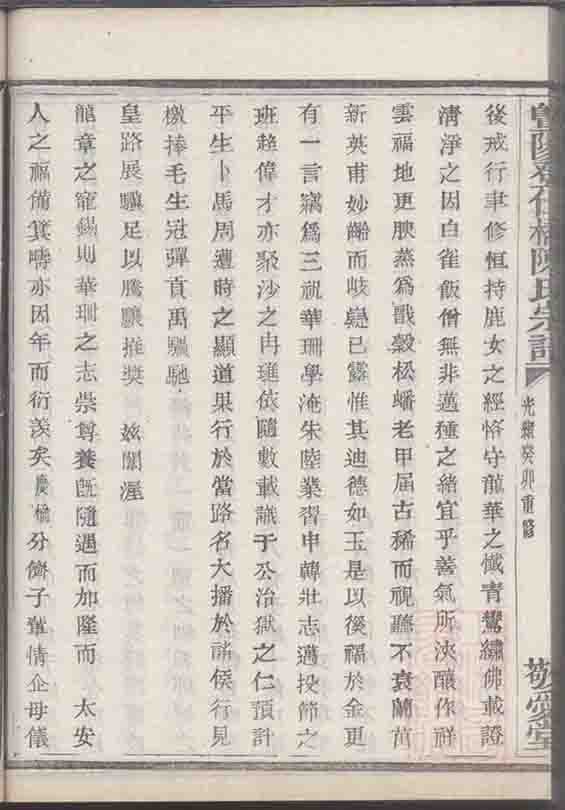 暨陽孝義橋陳氏宗譜 光緒癸卯重修 敬愛堂
後戒行聿修恒持鹿女之經恪守龍華之懺青鸞繡佛載證
清淨之因白雀飯僧無非邁種之緒宜乎善氣所浹釀作祥
雲福地更腴蒸為戩穀松蟠老甲屆古稀而視聽不衰蘭茁
新英甫妙齡而岐嶷已露惟其迪德如玉是以後福於金更
有一言竊為三祝華珊學淹朱陸業習申韓壯志邁投筋之
班超偉才亦聚沙之冉璡依隨數載識于公治獄之仁預計
平生卜馬周遭時之顯道果行於當路名大播於諸侯行見
檄捧毛生冠彈貢禹驥馳
皇路展驥足以騰驤推獎 茲闈渥
龍章之寵錫則華珊之志崇尊養既隨遇而加隆而 太安
人之福備箕疇亦因年而衍羡矣慶榆分儕子輩情企母儀